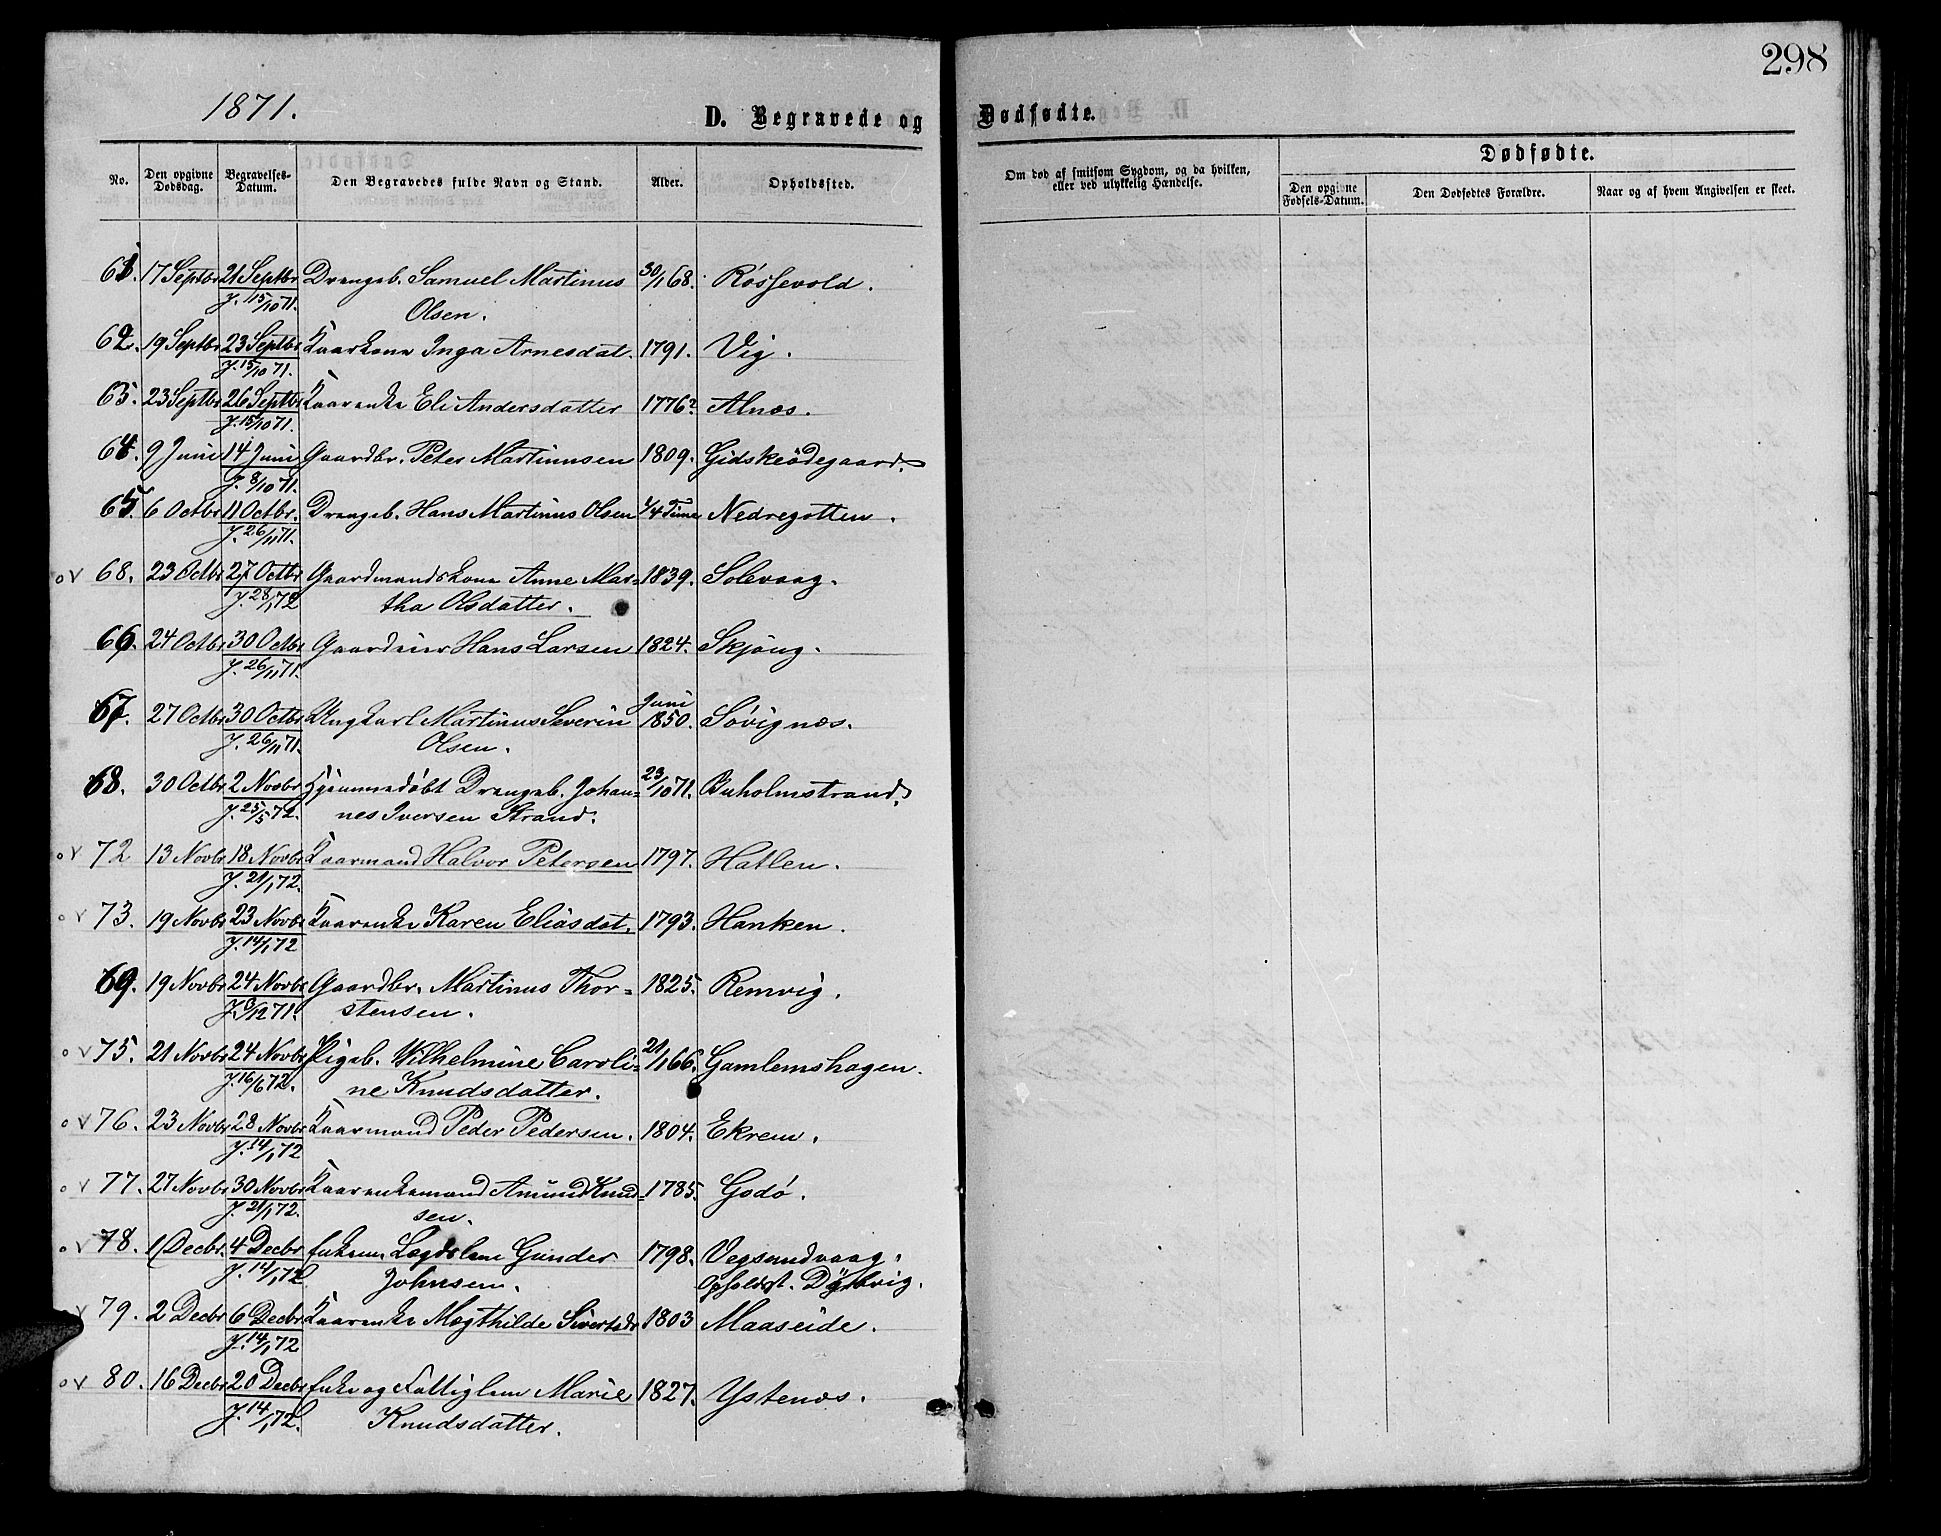 298
1871.
D. Begravede og Dødfødte.
No.
Den opgivne Dødsdag.
Begravelses-Datum.
Den Begravedes fulde Navn og Stand.
Alder.
Opholdssted.
Om død af smitsom Sygdom, og da hvilken, eller ved ulykkelig Hændelse.
Dødfødte.
Den opgivne Fødsels-Datum.
Den Dødfødtes Forældre.
Naar og af hvem Angivelsen er skeet.
61. 17 Septbr 21 Septbr Drengeb. Samuel Martinus 30/1 68. Røssevold.
J. 15/10 71. Olsen.
62. 19 Septbr 23 Septbr Kaarkone Inga Arnesdat. 1791. Vig.
J. 15/10 71.
63. 23 Septbr 26 Septbr Kaarenke Eli Andersdatter 1776? Alnæs.
J. 15/10 71.
64. 9 Juni 14 Juni Gaardbr. Peter Martinusen 1809. Gidskeødegaard.
J. 8/10 71.
65. 6 Octbr 11 Octbr. Drengeb. Hans Martinus Olsen 1/4 Time Nedregotten.
J. 26/11 71.
o v 68. 23 Octbr 27 Octbr Gaardmandskone Anne Mar= 1839. Solevaag.
J. 28/1 72 tha Olsdatter.
66. 24 Octbr 30 Octbr Gaardeier Hans Larsen 1824. Skjong.
J. 26/11 71.
67. 27 Octbr 30 Octbr Ungkarl Martinus Severin Juni 1850. Søvignæs.
J. 26/11 71. Olsen.
68. 30 Octbr 2 Novbr Hjemmedøbt Drengeb. Johan= 23/10 71. Buholmstrand.
J. 25/5 72. nes Iversen Strand.
o v 72 13 Novbr 18 Novbr Kaarmand Halvor Petersen 1797. Hatlen.
J. 21/1 72.
o v 73. 19 Novbr 23 Novbr Kaarenke Karen Eliasdat. 1793. Hanken.
J. 14/1 72
69. 19 Novbr 24 Novbr Gaardbr. Martinus Thor= 1825. Remvig.
J. 3/12 71. stensen.
o v 75. 21 Novbr 24 Novbr Pigeb. Wilhelmine Caroli= 21/1 66. Gamlemshagen.
J. 16/6 72. ne Knudsdatter.
o v 76. 23 Novbr 28 Novbr Kaarmand Peder Pedersen. 1804. Ekrem.
J. 14/1 72
o v 77. 27 Novbr 30 Novbr Kaarenkemand Amund Knud= 1785. Godø.
J. 21/1 72. sen.
o v 78. 1 Decbr. 4 Decbr Enkem. Lægdslem Gunder 1798. Vegsundvaag.
J. 14/1 72 Johnsen. Opholdst. Dybvig.
v 79. 2 Decbr 6 Decbr Kaarenke Magthilde Sivertsdr 1803 Maaseide.
J. 14/1 72
o v 80. 16 Decbr 20 Decbr Enke og Fattiglem Marie 1827. Ystenæs.
J. 14/1 72. Knudsdatter.